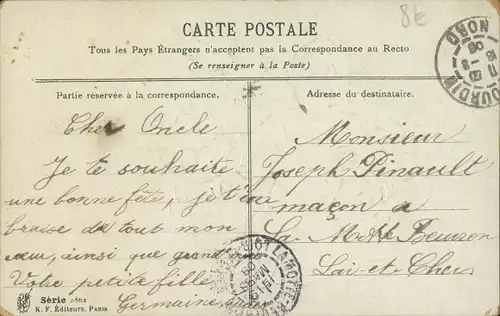 8€
CARTE POSTALE
Tous les Pays Étrangers n'acceptent pas la Correspondance au Recto
(Se renseigner à la Poste)
Partie réservée à la correspondance.
Adresse du destinataire.
Cher Oncle
Je te souhaite
une bonne fête, je t'em
brasse de tout mon
cœur, ainsi que grand mère
Votre petite fille
Germaine
Monsieur
Joseph Pinault
maçon a
La Mtte Beuvron
Loir-et-Cher
Série 1602
K. F. Éditeurs, Paris
LAMOTTE-BEUVRON